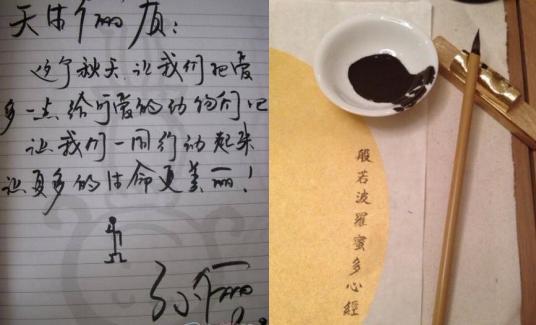 这个秋天,让我们把爱
多一点给可爱的动物们吧
让我们一同行动起来
让更多的生命更美丽!
般若波羅蜜多心經